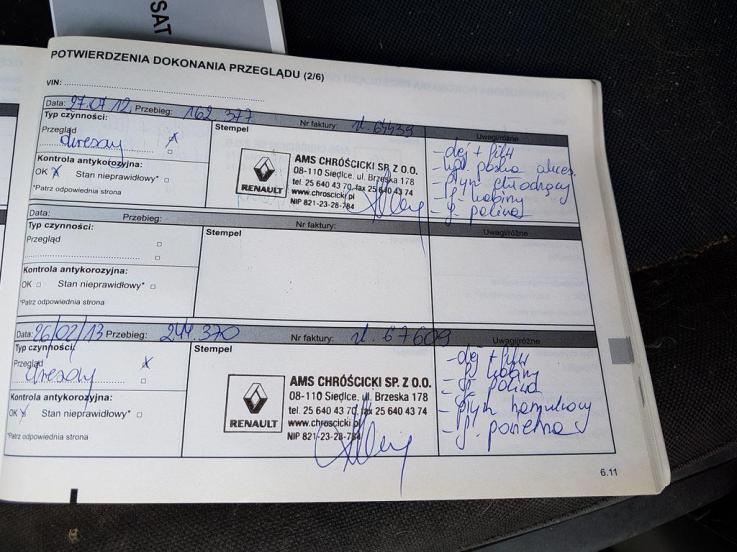 SAT
POTWIERDZENIA DOKONANIA PRZEGLĄDU (2/6)
VIN:
Data: 27.07.12 Przebieg: 162 377 Nr faktury: 64439 Uwagi/różne
Typ czynności:
Przegląd x
okresowy
Kontrola antykorozyjna:
OK x Stan nieprawidłowy*
*Patrz odpowiednia strona
Stempel
RENAULT
AMS CHRÓŚCICKI SP. Z O.O.
08-110 Siedlce, ul. Brzeska 178
tel. 25 640 43 70, fax 25 640 43 74
www.chroscicki.pl
NIP 821-23-28-784
- olej + filtr
- płyn chłodzący
- f. kabiny
- f. paliwa
Data: Przebieg: Nr faktury: Uwagi/różne
Typ czynności:
Przegląd
Kontrola antykorozyjna:
OK Stan nieprawidłowy*
*Patrz odpowiednia strona
Stempel
Data: 26/02/13 Przebieg: 244.370 Nr faktury: 67609 Uwagi/różne
Typ czynności:
Przegląd x
okresowy
Kontrola antykorozyjna:
OK x Stan nieprawidłowy*
*Patrz odpowiednia strona
Stempel
RENAULT
AMS CHRÓŚCICKI SP. Z O.O.
08-110 Siedlce, ul. Brzeska 178
tel. 25 640 43 70, fax 25 640 43 74
www.chroscicki.pl
NIP 821-23-28-784
- olej + filtr
f. kabiny
- f. paliwa
- płyn hamulcowy
- f. powietrza
6.11